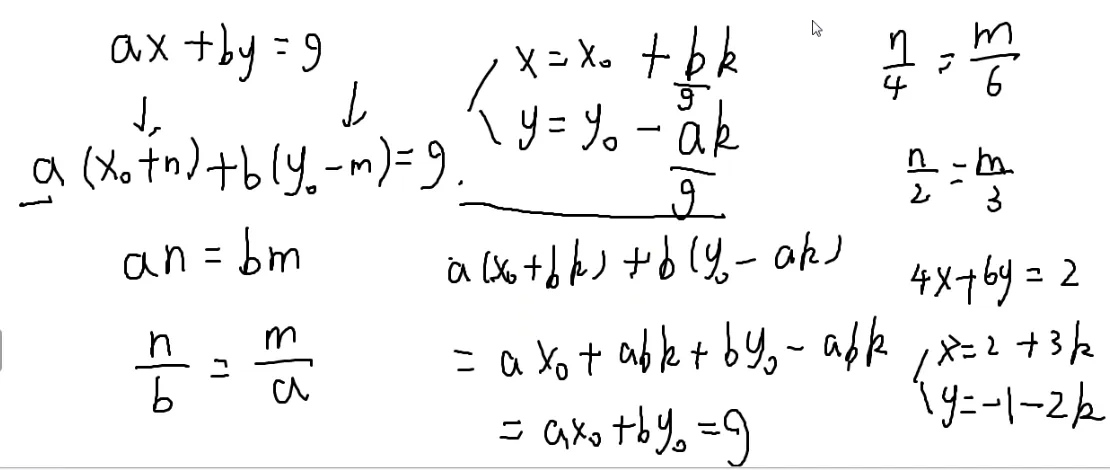 ax + by = g
a(x₀+n) + b(y₀-m) = g.
an = bm
n/b = m/a
x = x₀ + b/g k
y = y₀ - a/g k
a(x₀+bk) + b(y₀-ak)
= ax₀ + abk + by₀ - abk
= ax₀ + by₀ = g
n/4 = m/6
n/2 = m/3
4x+6y = 2
x = 2 + 3k
y = -1 - 2k